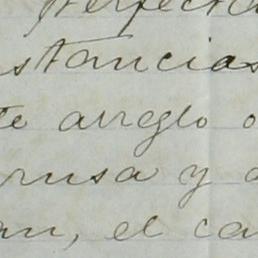 perfecta
stancias
te arreglo o
rusa y a
an, el ca